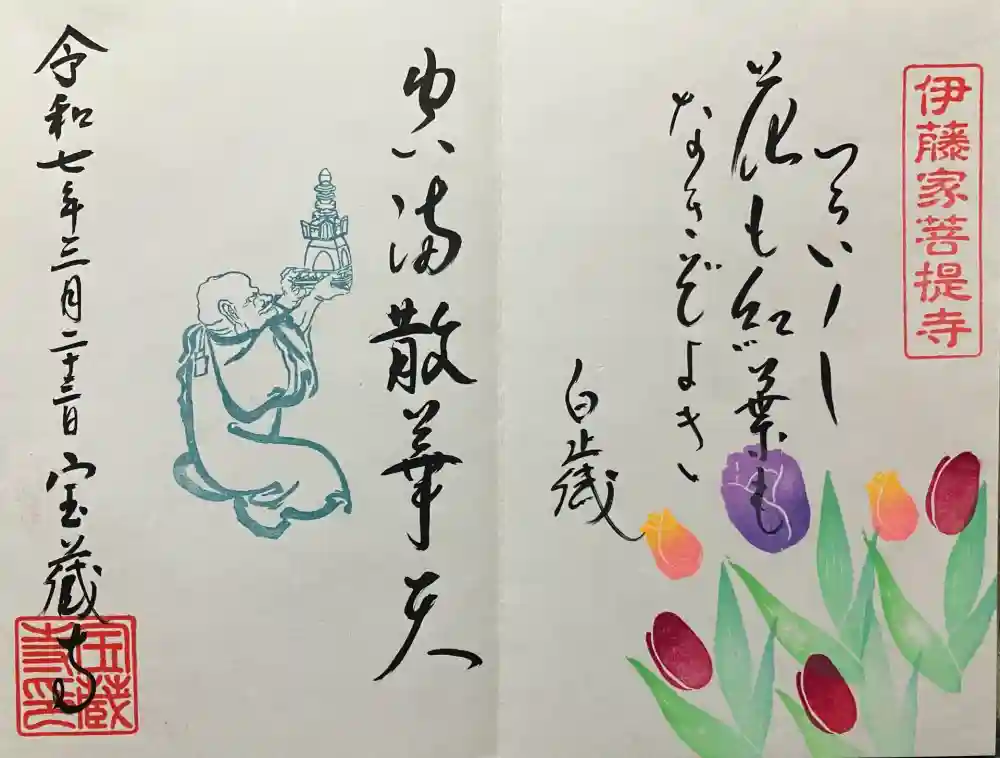 伊藤家菩提寺
花も紅葉も
なきぞよき
白歳
満散華
令和七年三月二十三日 宝蔵寺
宝蔵寺印